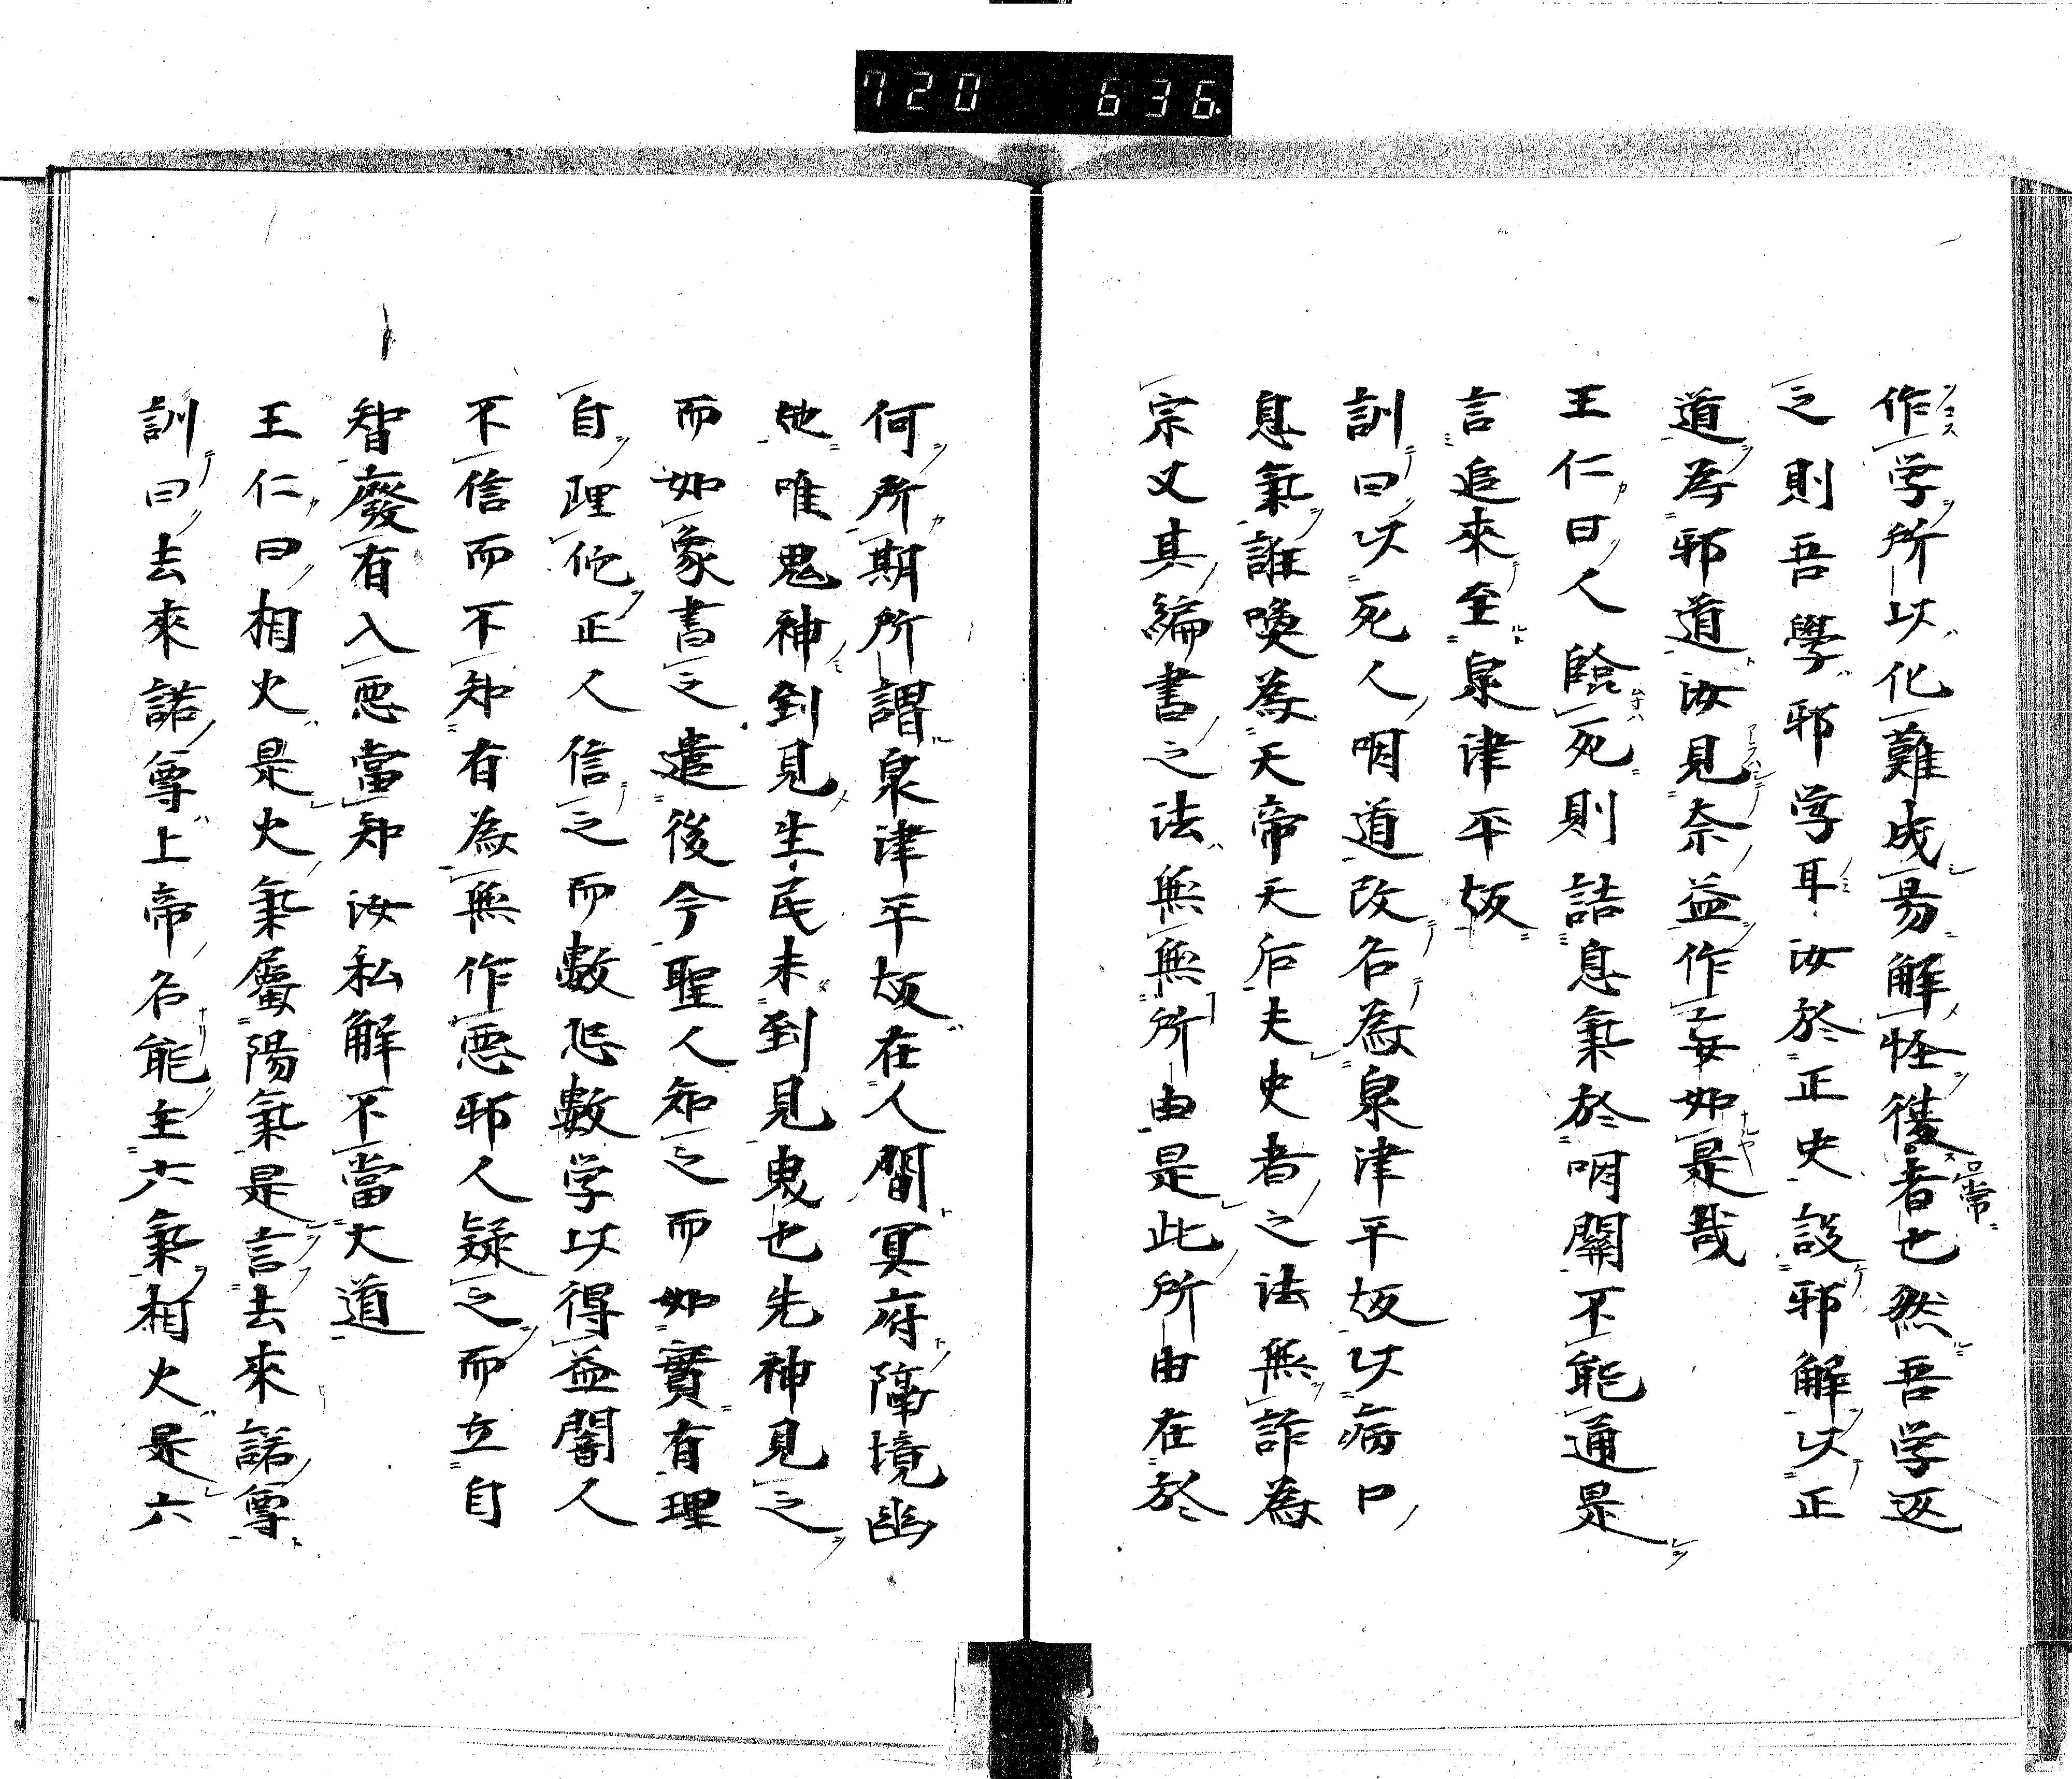 720 636.
作学所以化難成易解怪復常者也然吾学返
之則吾學邪学耳汝於正史設邪解以正
道為邪道汝見奈益作妄如是哉
王仁曰人臨死則詰息氣於咽關不能通是
言追來至泉津平坂
訓曰以死人咽道改名為泉津平坂以病口
息氣誰喚為天帝天后夫史者之法無詐為
宗又其編書之法無無所由是此所由在於
何所期所謂泉津平坂在人間冥府隔境幽
地唯鬼神到見生民未到見曳也先神見之
而如象書之遣後今聖人知之而如實有理
自理他正人信之而數忌數学以得益闇人
不信而不知有為無作悪邪人疑之而立自
智廢有入悪當知汝私解不當大道
王仁曰相火是火氣屬陽氣是言去來諾尊
訓曰去來諾尊上帝名能主六氣相火是六